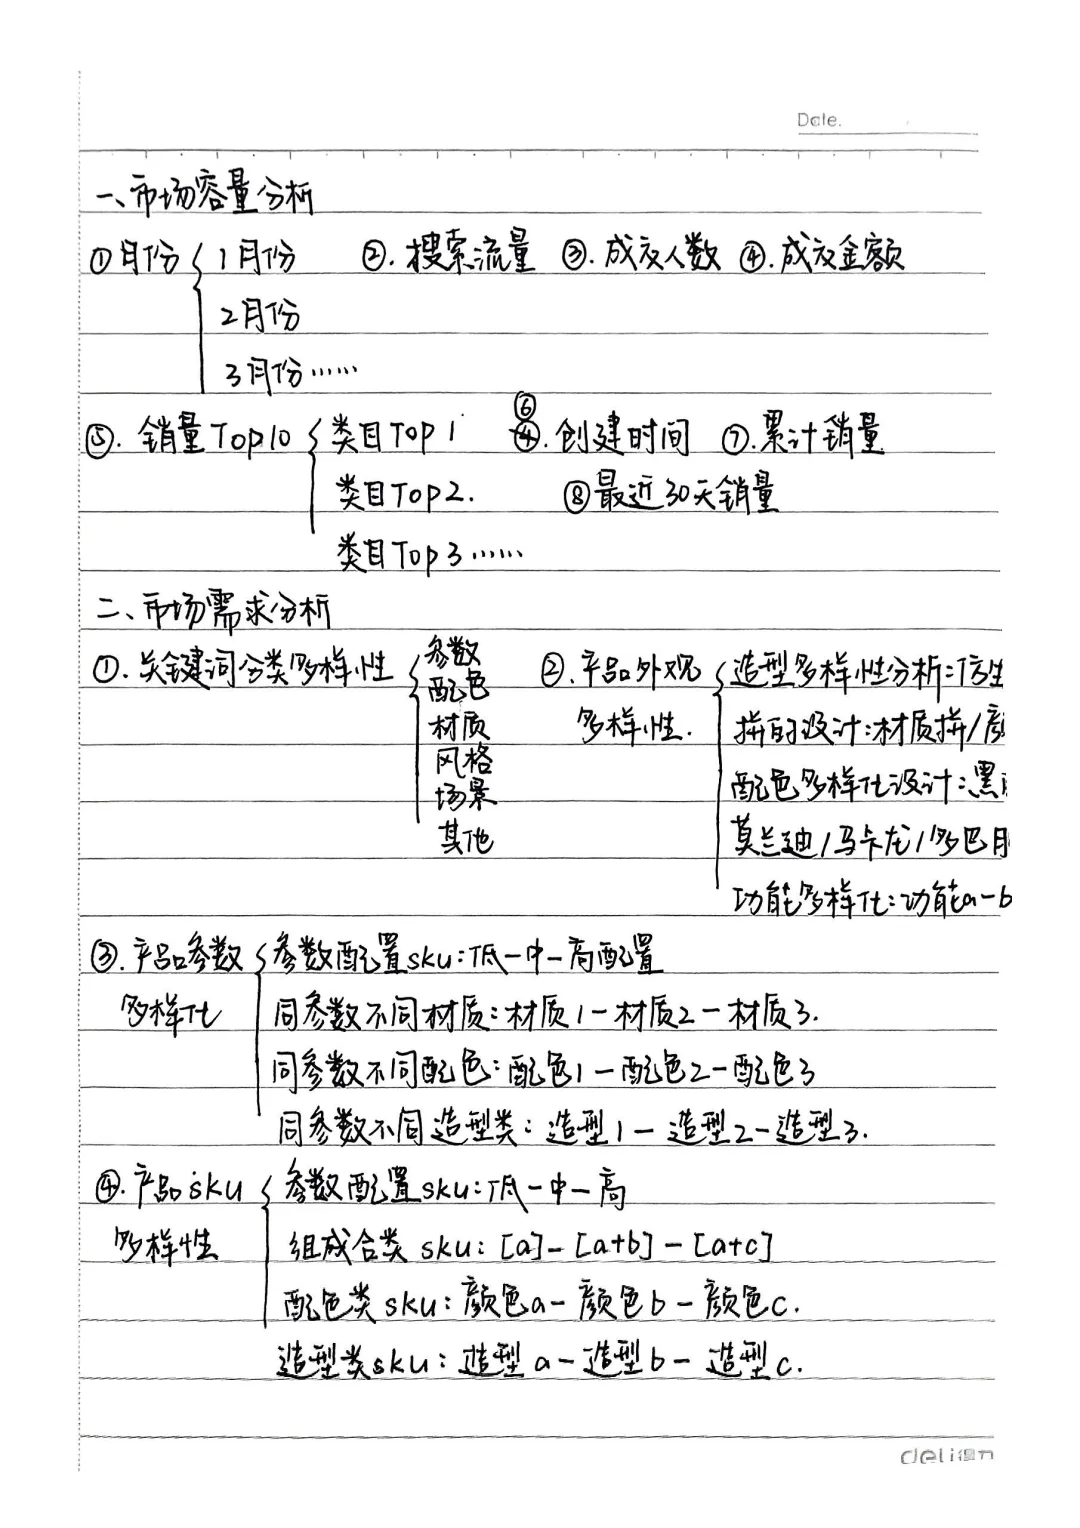 Date.
一、市场容量分析
①月份 1月份 ②.搜索流量 ③.成交人数 ④.成交金额
2月份
3月份……
⑥
⑤.销量Top10 类目Top1 ④.创建时间 ⑦.累计销量
类目Top2. ⑧最近30天销量
类目Top3……
二、市场需求分析
①.关键词分类多样性 参数 ②.产品外观 造型多样性分析:仿生
配色
材质 多样性. 拼的设计:材质拼/颜
风格
场景 配色多样化设计:黑
其他 莫兰迪/马卡龙/多巴
功能多样化:功能a-b
③.产品参数 参数配置sku:低-中-高配置
多样化 同参数不同材质:材质1-材质2-材质3.
同参数不同配色:配色1-配色2-配色3
同参数不同造型类:造型1-造型2-造型3.
④.产品sku 参数配置sku:低-中-高
多样性 组成合类sku:[a]-[a+b]-[a+c]
配色类sku:颜色a-颜色b-颜色c.
造型类sku:造型a-造型b-造型c.
deli得力